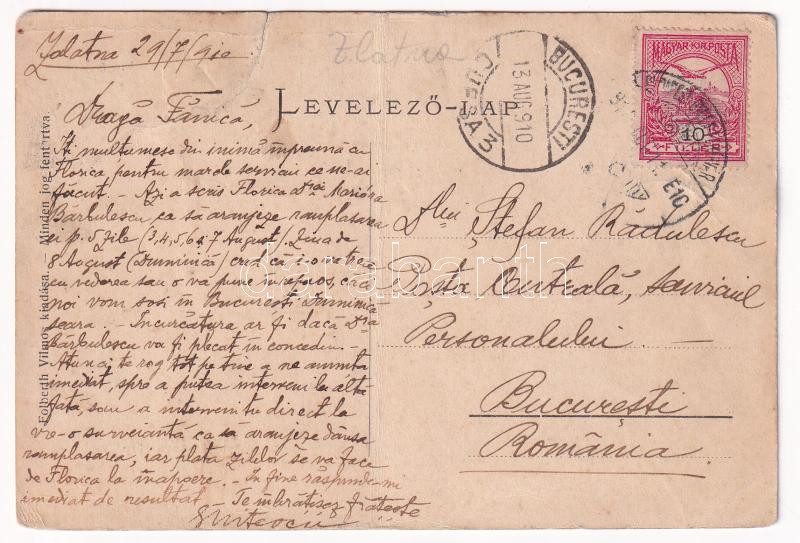 Zalatna 29/7/910
Zlatna
LEVELEZŐ-LAP
MAGYAR KIR. POSTA
10
FILLÉR
BUCURESTI
13 AUG 910
Dragă Fănică,
Iți multumesc din inimă împreună cu
Florica pentru marele serviciu ce ne-ai
făcut. - Azi a scris Florica Drei Marióra
Bărbulescu ca să aranjeze ramplasarea
ei p. 5 zile (3,4,5,6 și 7 August). Ziua de
8 August (Duminică) cred că i-o va trece
cu vederea sau o va pune în repaos, căci
noi vom sosi în București Duminică
seara. - Incurcătura ar fi dacă Dra
Bărbulescu va fi plecat în concediu. -
Atunci te rog tot pe tine a ne anunta
imediat, spre a putea interveni la altă
fată, sau a interveni tu direct la
vre-o surveiantă ca să aranjeze dânsa
ramplasarea, iar plata zilelor se va face
de Florica la înapoere. - In fine răspunde-mi
imediat de resultat - Te îmbrățișez frățește
Dlui Ștefan Rădulescu
Poșta Centrală, serviciul
Personalului -
București
România
Folberth Vilmos kiadása. - Minden jog fentartva.
darabanth